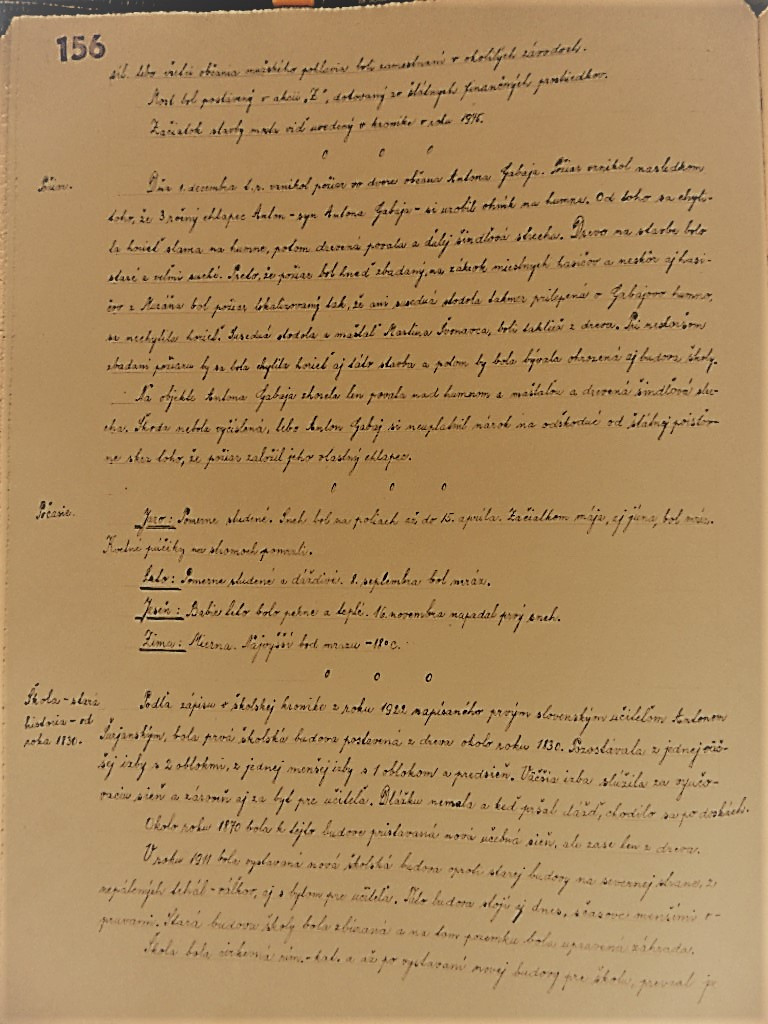 156
síl, lebo všetci občania mužského pohlavia boli zamestnaní v okolitých závodoch.
Most bol postavený v akcii „Z", dotovaný zo štátnych finančných prostriedkov.
Začiatok stavby mosta viď uvedený v kronike v roku 1975.
o o o
Požiar. Dňa 1. decembra t.r. vznikol požiar vo dvore občana Antona Gabaja. Požiar vznikol následkom
toho, že 3 ročný chlapec Anton - syn Antona Gabaja - si urobil ohník na humne. Od toho sa chyti-
la horieť slama na humne, potom drevená povala a ďalej šindľová strecha. Drevo na stavbe bolo
staré a veľmi suché. Preto, že požiar bol hneď zbadaný, na zákrok miestnych hasičov a neskôr aj hasi-
čov z bol požiar lokalizovaný tak, že ani susedná stodola takmer prilepená o Gabajovo humno,
sa nechytila horieť. Susedná stodola a maštaľ Martina boli taktiež z dreva. Pri neskoršom
zbadaní požiaru by sa bola chytila horieť aj táto stavba a potom by bola bývala ohrozená aj budova školy.
Na objekte Antona Gabaja zhorela len povala nad humnom a maštaľou a drevená šindľová stre-
cha. Škoda nebola vyčíslená, lebo Anton Gabaj si neuplatnil nárok na odškodné od štátnej poisťov-
ne skrz toho, že požiar založil jeho vlastný chlapec.
o o o
Počasie. Jaro: Pomerne studené. Sneh bol na poliach až do 15. apríla. Začiatkom mája, aj júna, bol mráz.
Kvetné púčiky na stromoch pomrzli.
Leto: Pomerne studené a dáždivé. 8. septembra bol mráz.
Jeseň: Babie leto bolo pekné a teplé. 16. novembra napadal prvý sneh.
Zima: Mierna. Najvyšší bod mrazu -18°C.
o o o
Škola - stará
história - od
roku 1830.
Podľa zápisu v školskej kronike z roku 1922 napísaného prvým slovenským učiteľom Antonom
Šurjanským, bola prvá školská budova postavená z dreva okolo roku 1830. Pozostávala z jednej väč-
šej izby s 2 oblokmi, z jednej menšej izby s 1 oblokom a predsieň. Väčšia izba slúžila za vyučo-
vaciu sieň a zároveň aj za byt pre učiteľa. Dlážku nemala a keď pršal dážď, chodilo sa po doskách.
Okolo roku 1870 bola k tejto budove pristavaná nová učebná sieň, ale zase len z dreva.
V roku 1911 bola vystavaná nová školská budova oproti starej budovy na severnej strane, z
nepálených tehál - válkov, aj s bytom pre učiteľa. Táto budova stojí aj dnes, sčasove menšími o-
pravami. Stará budova školy bola zbúraná a na tom pozemku bola upravená záhrada.
Škola bola cirkevná rím.-kat. a až po vystavaní novej budovy pre školu, prevzal ju